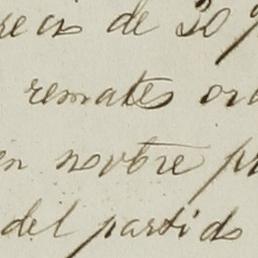 de 30
remates
en novbre
del partido